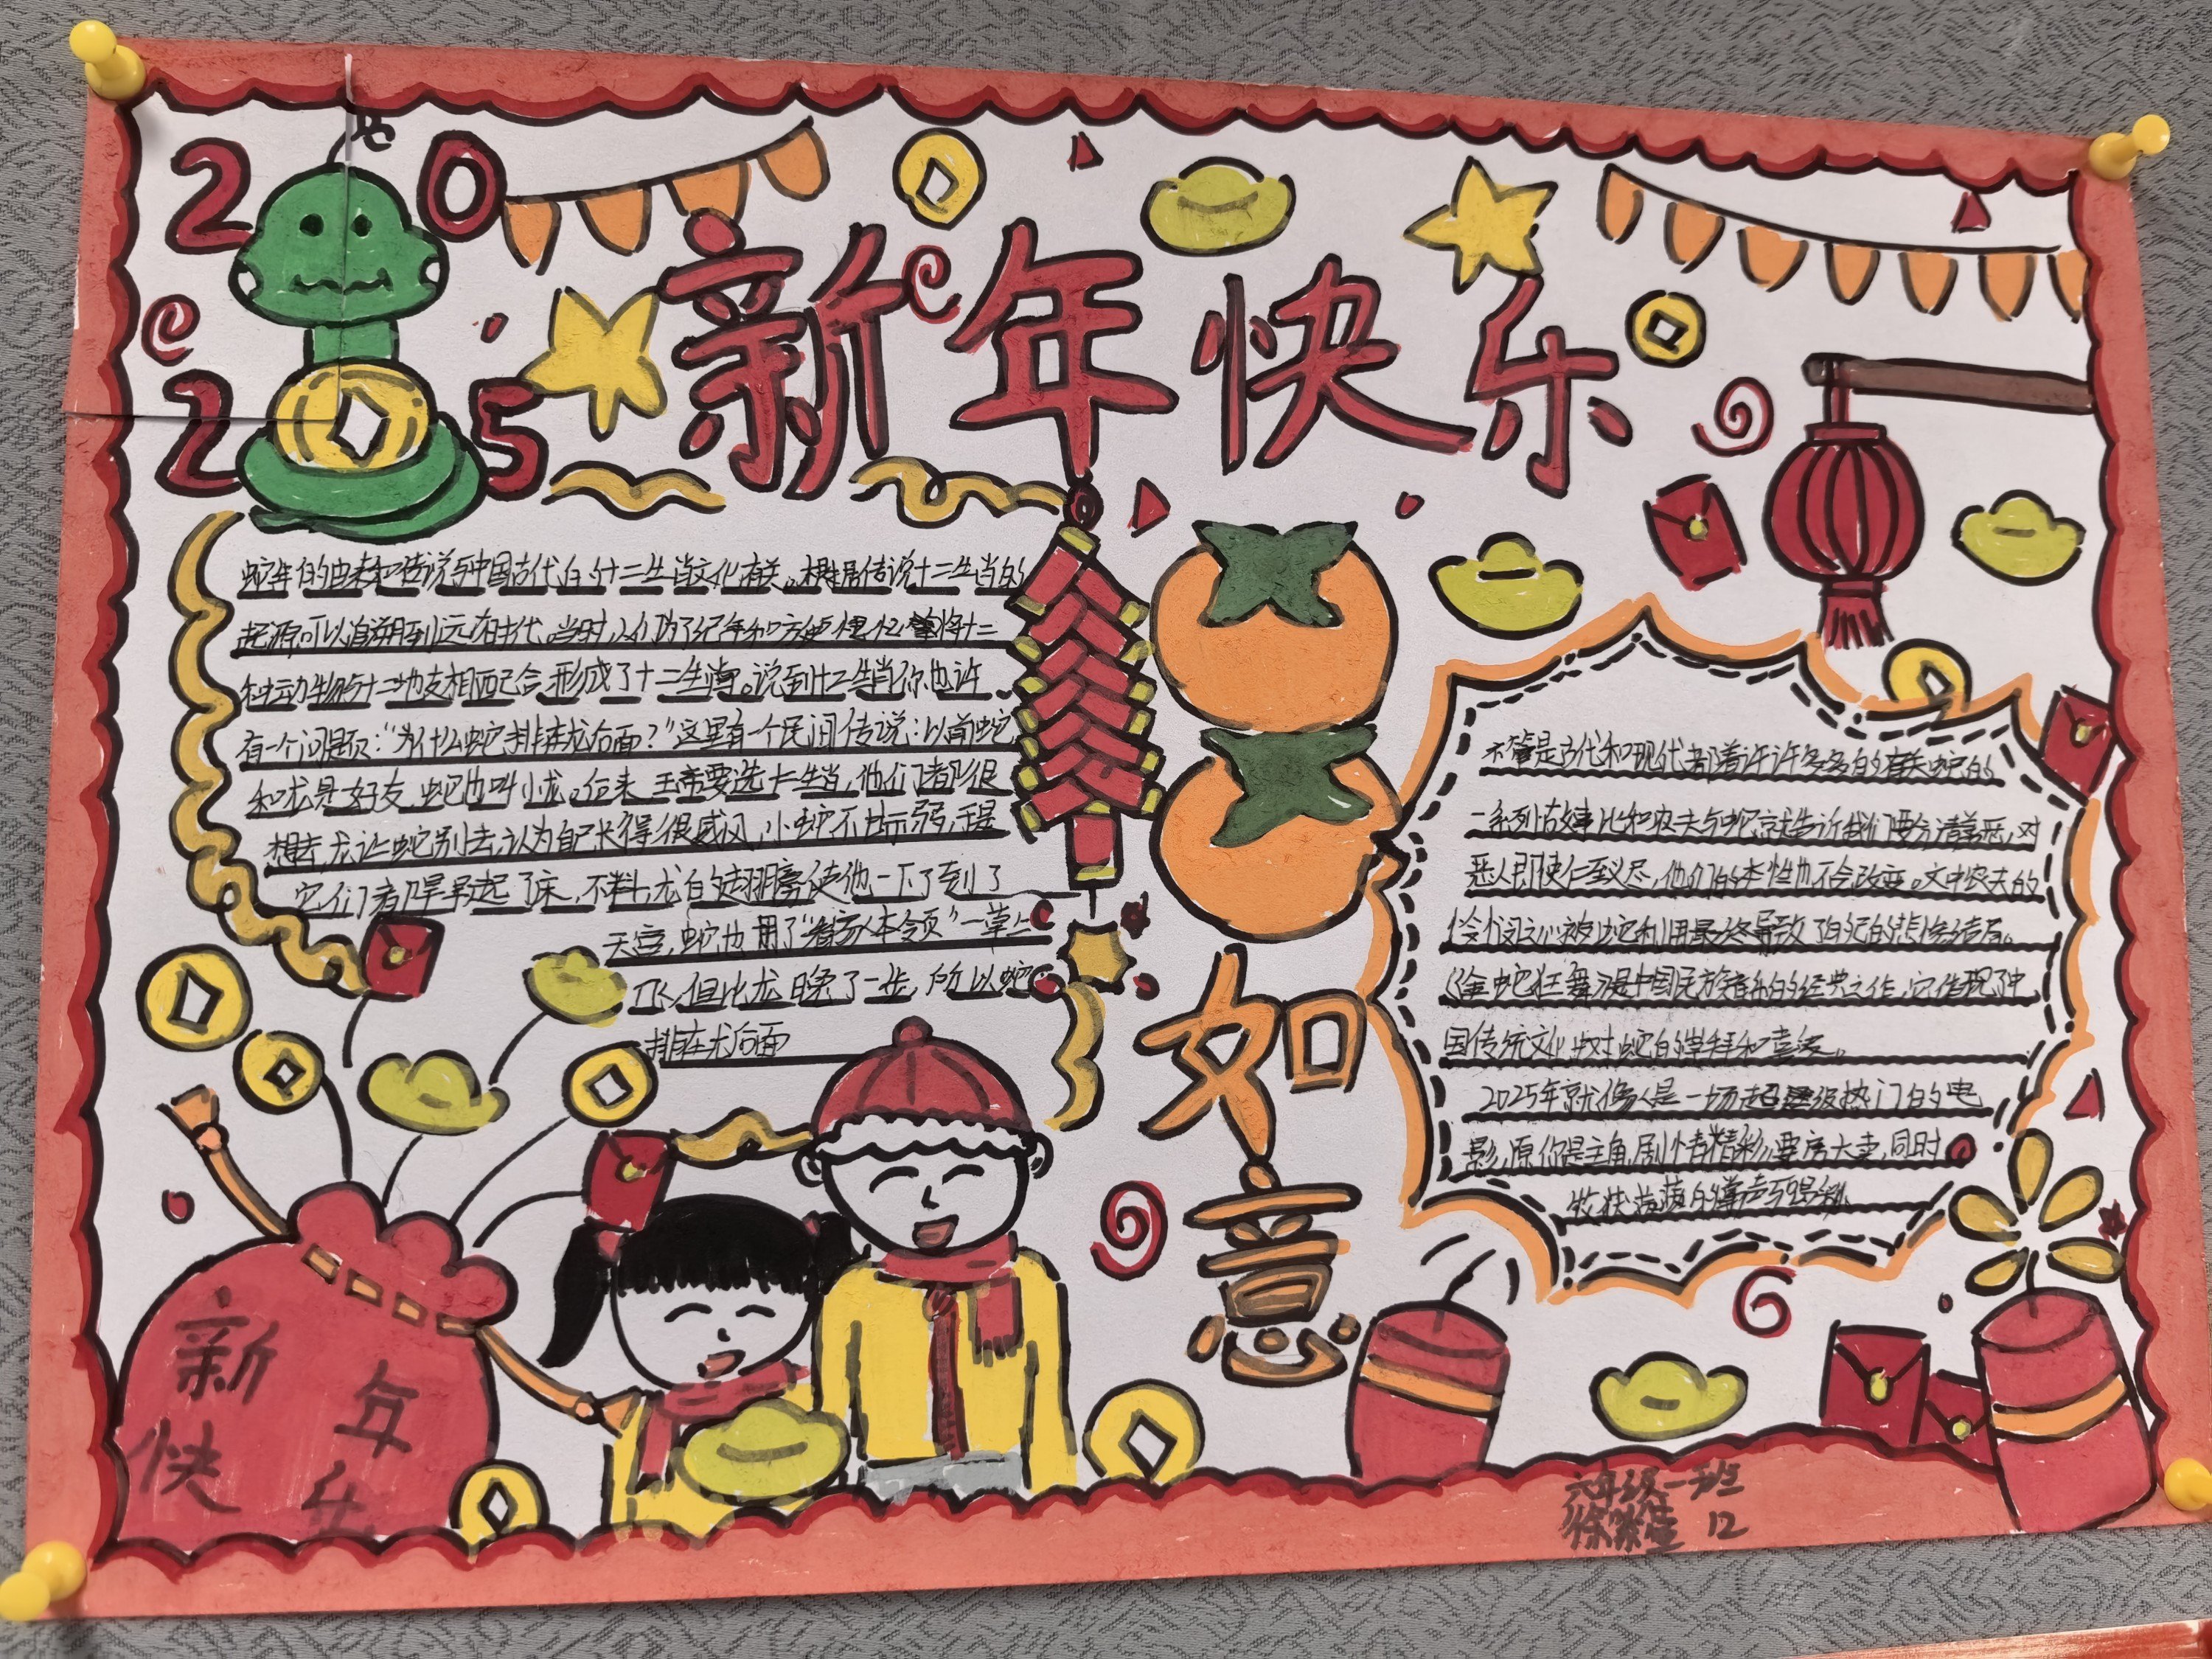 20
25
新年快乐
蛇年的由来和传说与中国古代的十二生肖文化有关。根据传说十二生肖的
起源可以追溯到远古时代。当时,人们为了纪年和方便记忆,将十二
种动物与十二地支相配合,形成了十二生肖。说到十二生肖你也许
有一个问题:“为什么蛇排在龙后面?”这里有一个民间传说:以前蛇
和龙是好友,蛇也叫小龙。后来玉帝要选十二生肖,他们都很
想去,龙让蛇别去,认为自己长得很威风,小蛇不甘示弱,于是
它们都早早起了床,不料,龙的翅膀使他一下了到了
天宫,蛇也用了“看家本领”一草上
飞,但比龙晚了一步,所以蛇
排在龙后面
如
意
不管是古代和现代都着许许多多的有关蛇的
一系列故事比和农夫与蛇就告诉我们要分清善恶,对
恶人即使仁至义尽,他们的本性也不会改变。文中农夫的
被蛇利用最终导致了自己的悲惨结局。
《金蛇狂舞》是中国民族音乐的经典之作,它体现了中
国传统文化中对蛇的崇拜和喜爱。
2025年就像是一场超级热门的电
影,愿你是主角,剧情精彩,票房大卖,同时
收获满满的掌声与
新年
快乐
六年级一班
12